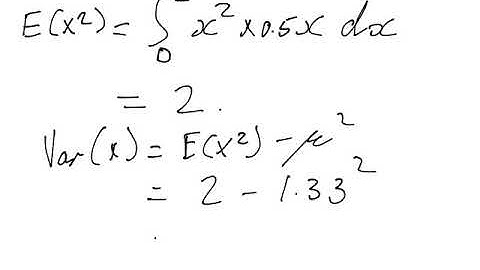 E(X²) = ∫₀ x² × 0.5x dx
= 2.
Var(x) = E(X²) - μ²
= 2 - 1.33²